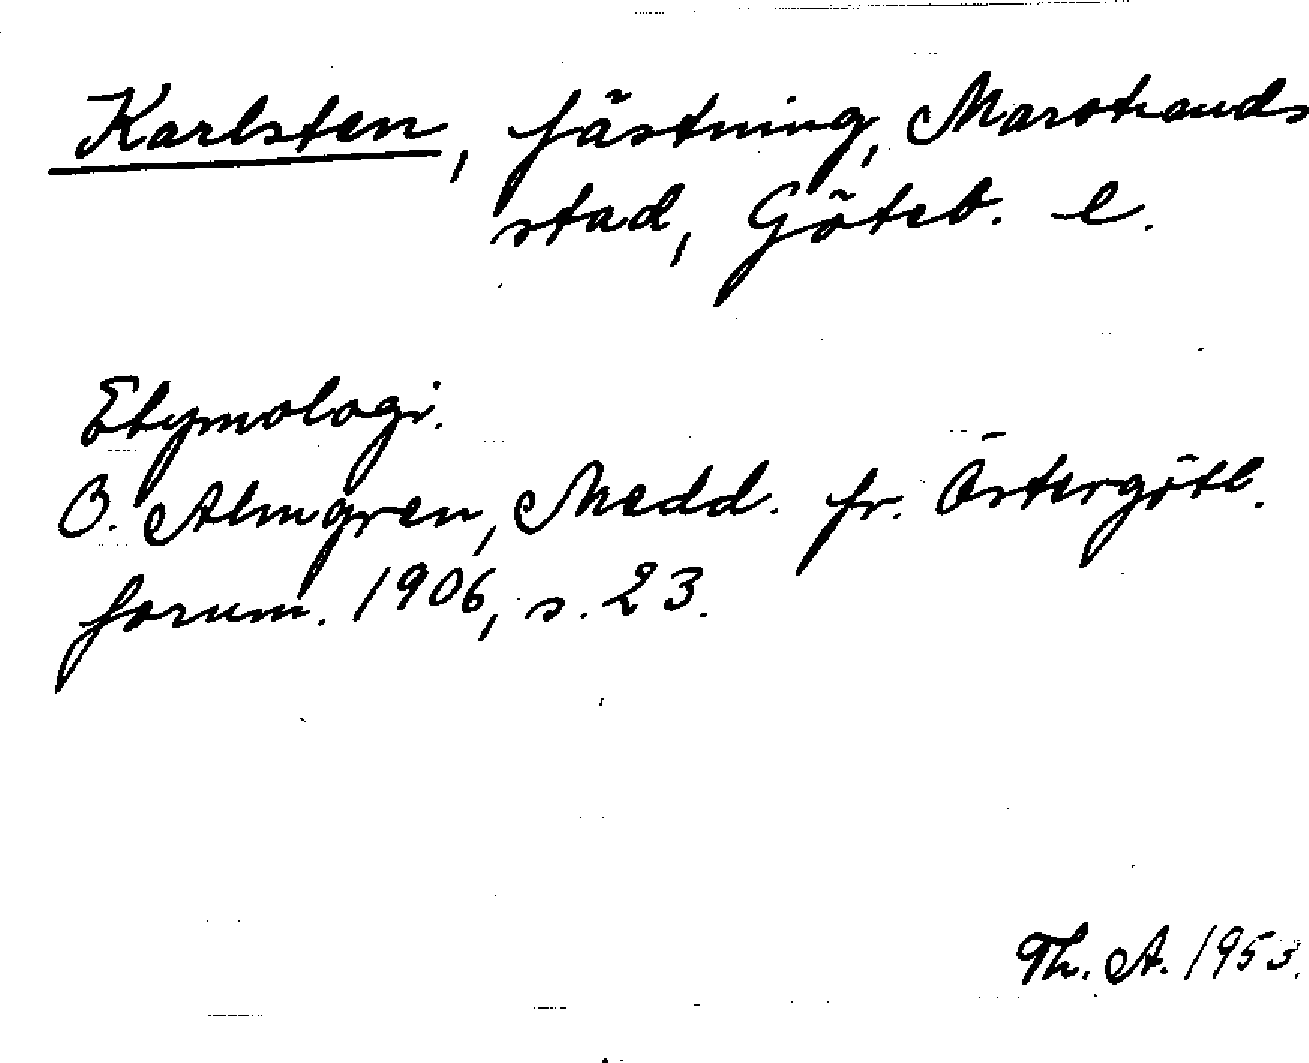 Karlsten, fästning, Marstrands
stad, Göteb. l.
Etymologi.
O. Almgren, Medd. fr. Östergötl.
fornm. 1906, s. 23.
Th. A. 1953.